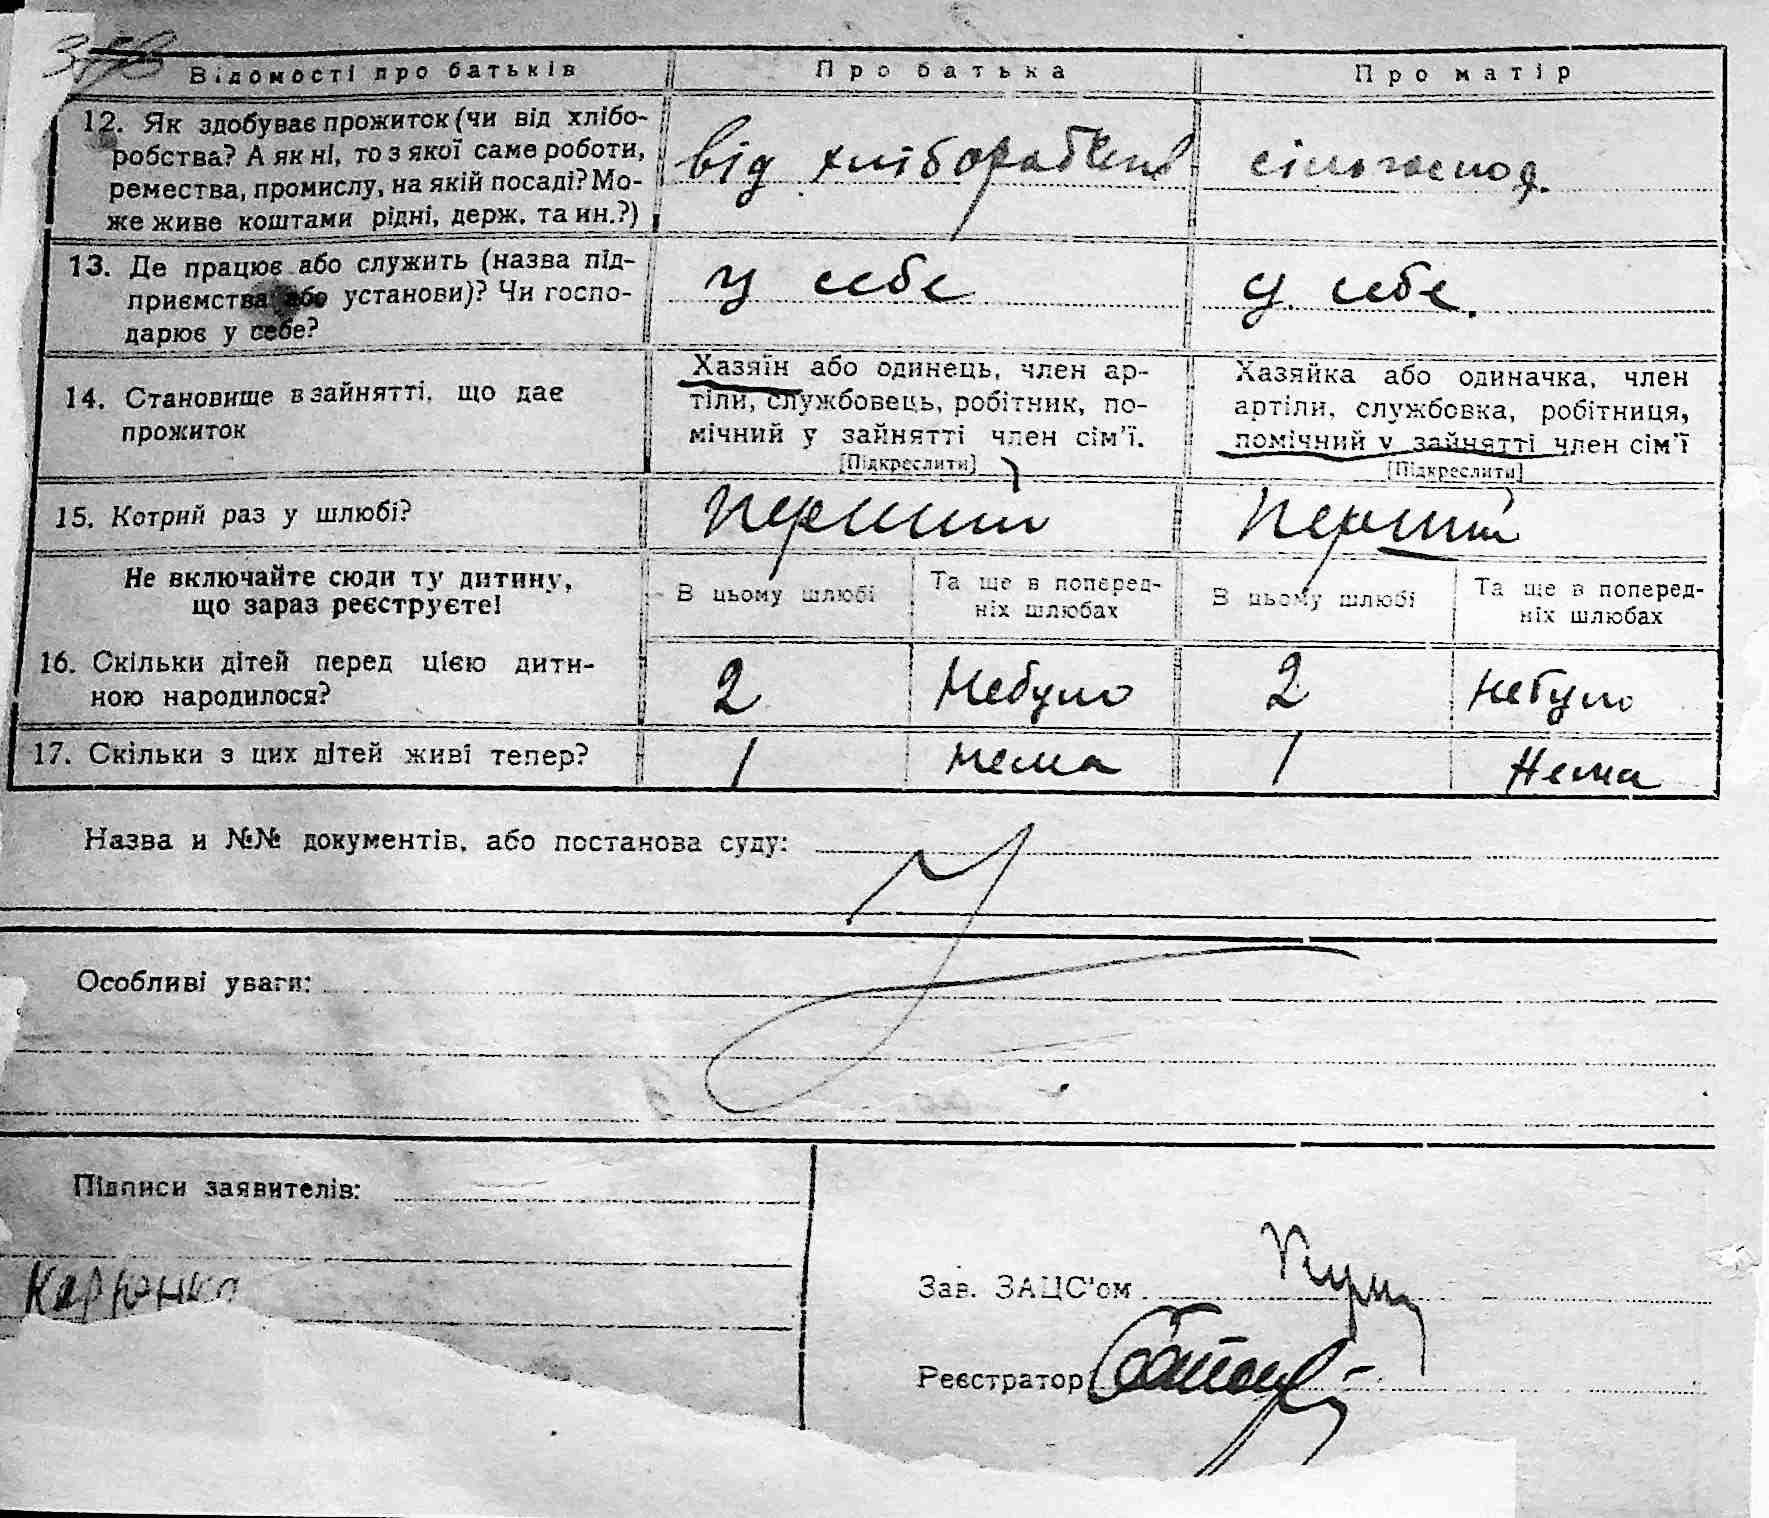 Відомості про батьків Про батька Про матір
12. Як здобуває прожиток (чи від хлібо-
робства? А як ні, то з якої саме роботи,
ремества, промислу, на якій посаді? Мо-
же живе коштами рідні, держ. та ин.?)
від
сільгоспод.
13. Де працює або служить (назва під-
приємства або установи)? Чи госпо-
дарює у себе?
у себе
у себе.
14. Становище в зайнятті, що дає
прожиток
Хазяїн або одинець, член ар-
тіли, службовець, робітник, по-
мічний у зайнятті член сім'ї.
[Підкреслити]
Хазяйка або одиначка, член
артіли, службовка, робітниця,
помічний у зайнятті член сім'ї
[Підкреслити]
15. Котрий раз у шлюбі?
перший
перший
Не включайте сюди ту дитину,
що зараз реєструєте!
В цьому шлюбі
Та ще в поперед-
ніх шлюбах
В цьому шлюбі
Та ще в поперед-
ніх шлюбах
16. Скільки дітей перед цією дити-
ною народилося?
2 небуло 2 небуло
17. Скільки з цих дітей живі тепер?
1 нема 1 нема
Назва и №№ документів, або постанова суду:
Особливі уваги:
Підписи заявителів:
Зав. ЗАЦС'ом
Реєстратор